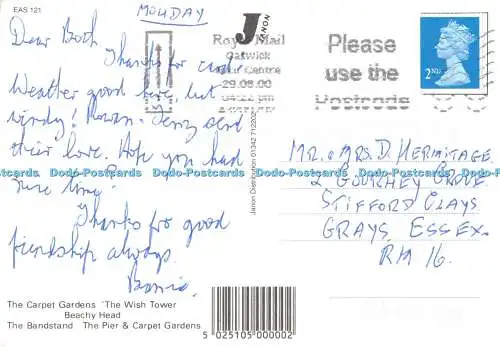 EAS 121
MONDAY
Dear Both
Thanks for card.
Weather good here but
windy! Rowan Jenny send
their love. Hope you had
fun time!
Thanks for good
friendship always.
The Carpet Gardens The Wish Tower
Beachy Head
The Bandstand The Pier & Carpet Gardens
J
Royal Mail
Gatwick
Mail Centre
29.08.00
Please
use the
Postcode
2ND
MR. & MRS. D. HERMITAGE
2 GOURTNEY GROVE
STIFFORD CLAYS
GRAYS ESSEX.
RM 16.
5 025105 000002
Dodo-Postcards Dodo-Postcards Dodo-Postcards Dodo-Postcards Dodo-Postcards